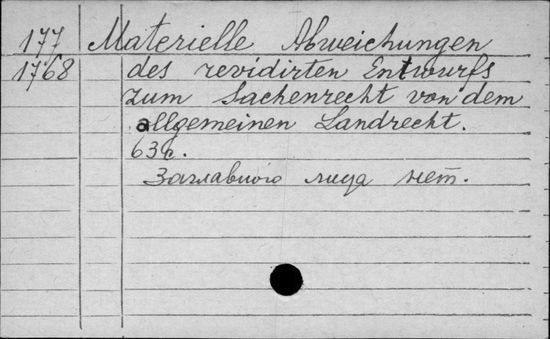 177 Materielle Abweichungen
1768 des revidirten Entwurfs
zum Sachenrecht von dem
allgemeinen Landrecht.
63 с.
Заглавного лица нет.